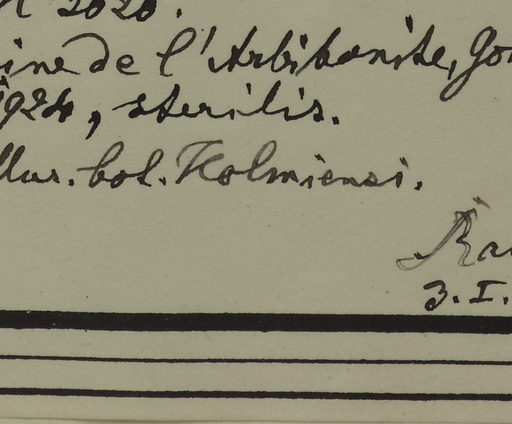 2020.
ine de l'Arbibonite, Go
1924, sterilis.
Mus. bot. Holmiensi.
3. I.